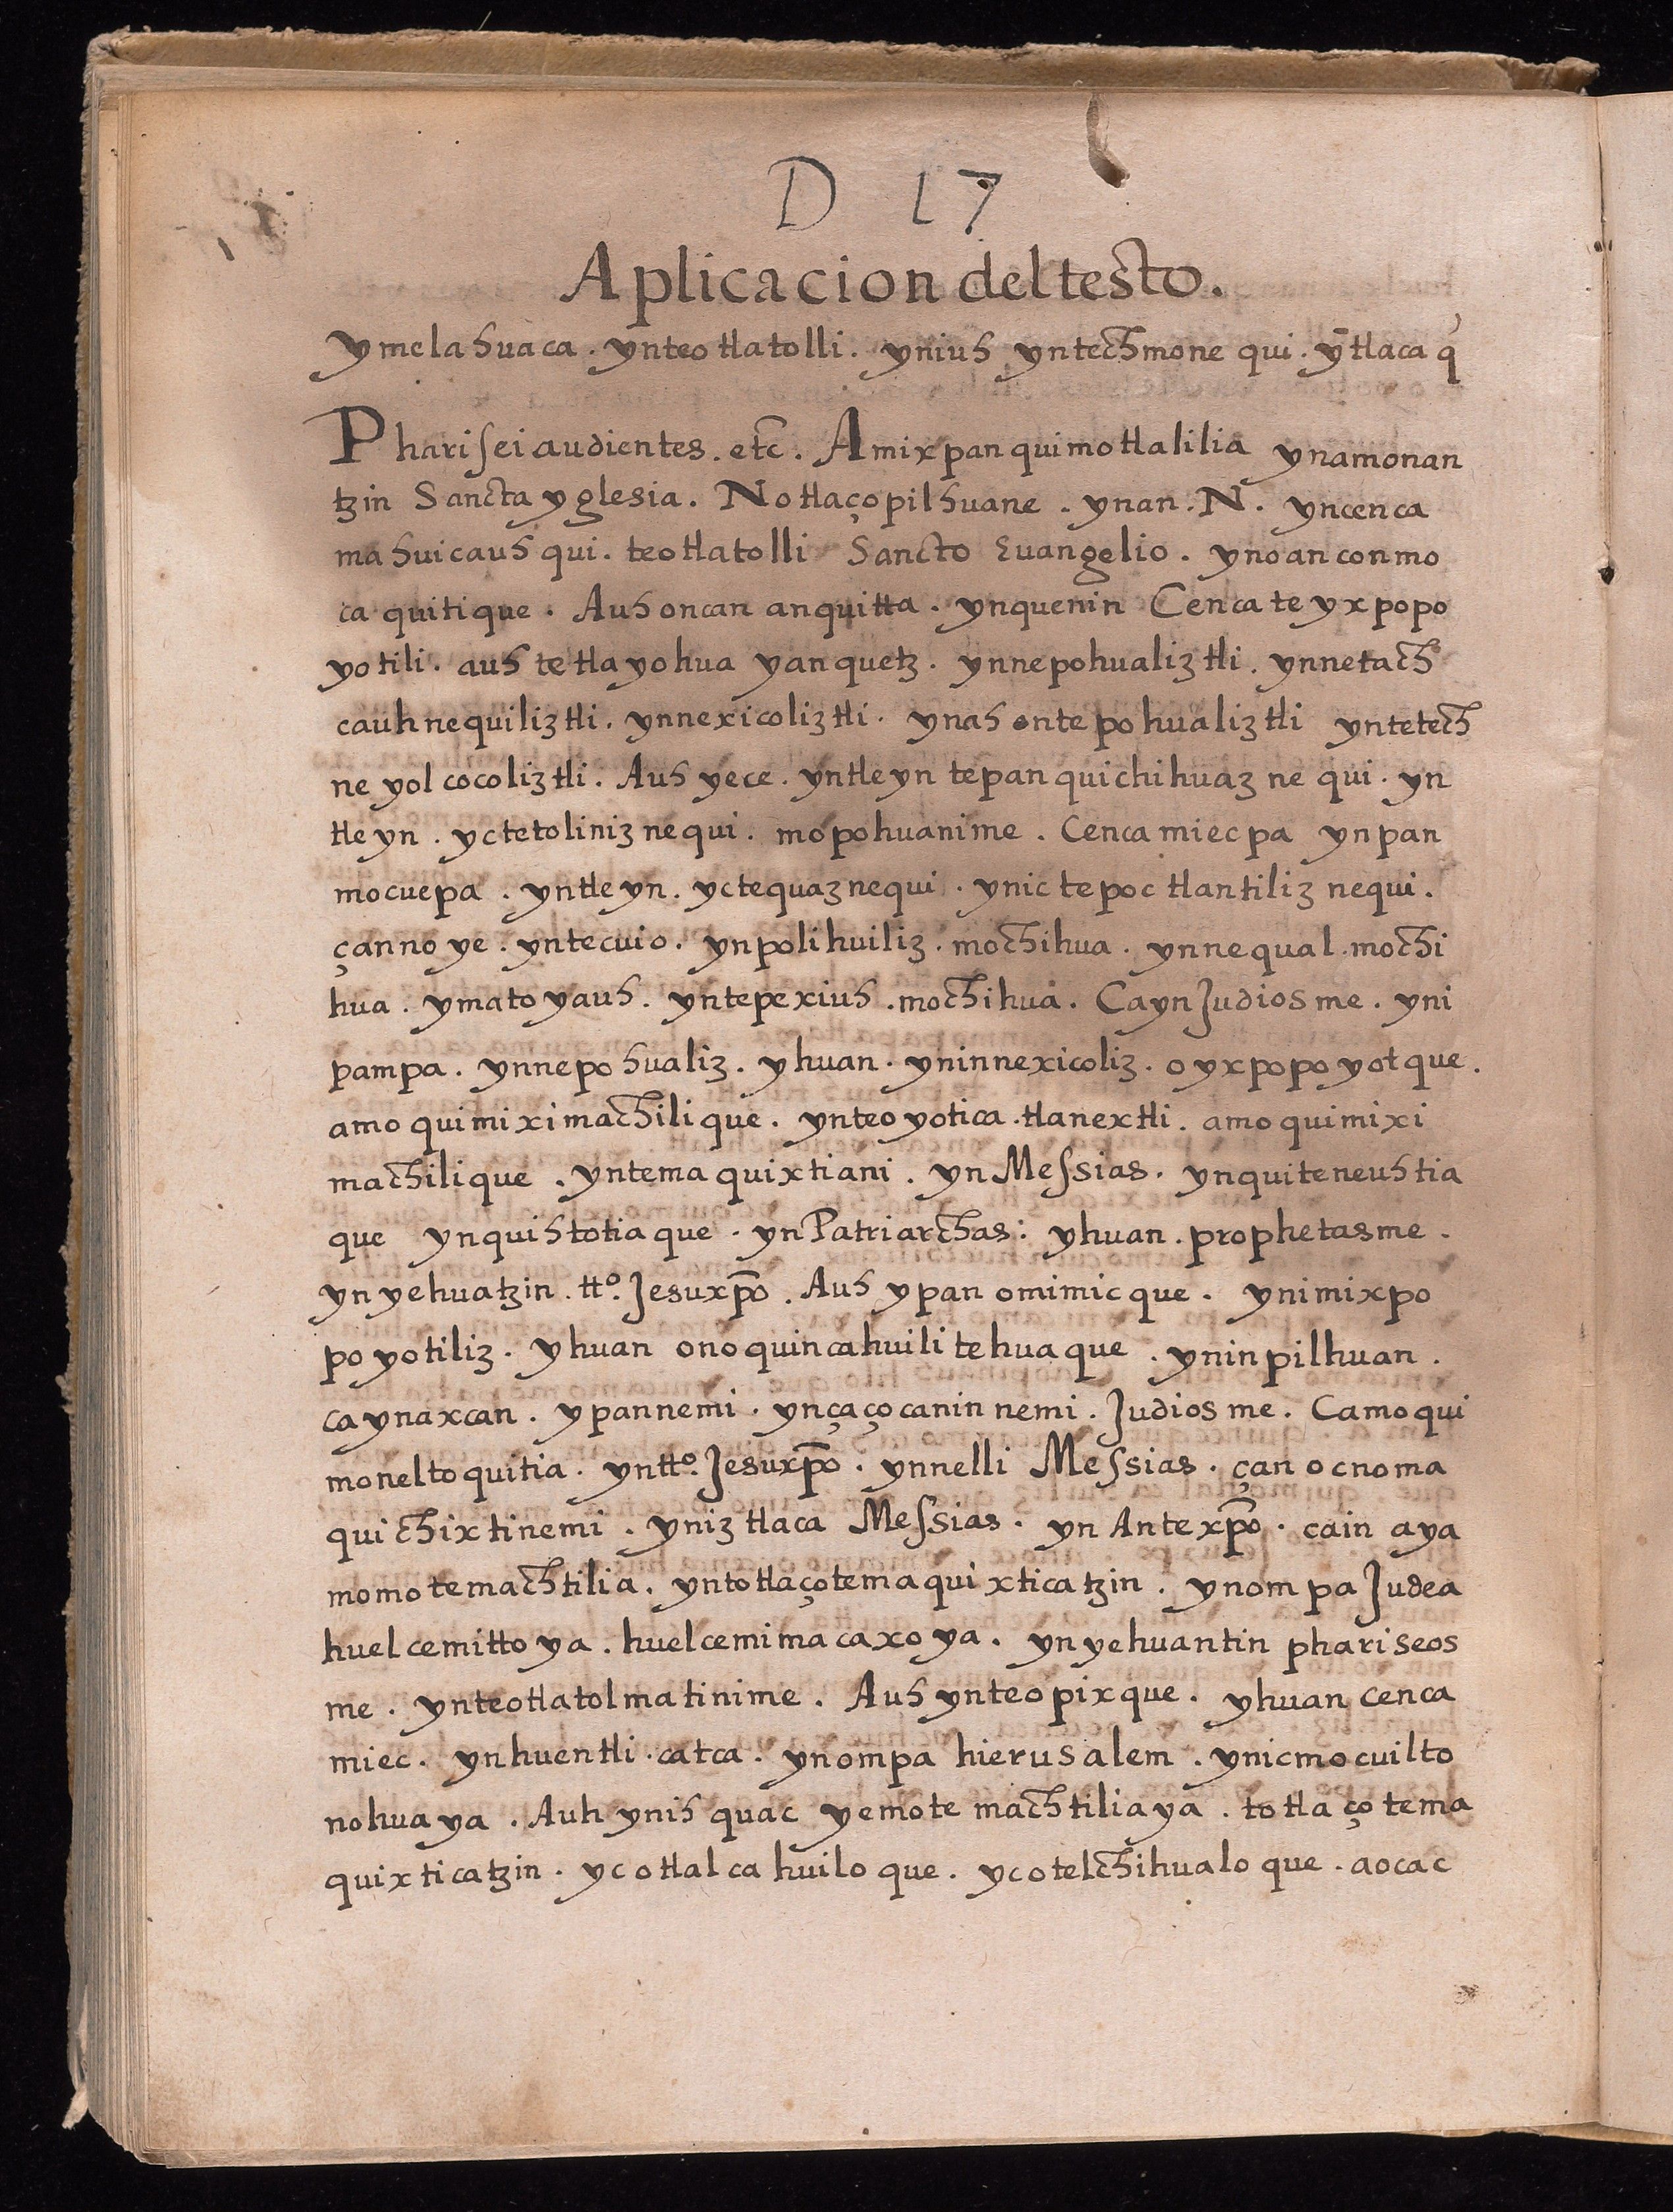 D 17
Aplicacion del testo.
Ymelahuaca. ynteotlatolli. yniuh yntechmone qui. ȳtlaca q̃
Pharisei audientes. etc. Amixpan quimotlalilia ynamonan
tzin Sancta yglesia. Notlaçopilhuane. ynan. N. yncenca
mahuicauhqui. teotlatolli Sancto Euangelio. ynoanconmo
caquitique. Auh oncan anquitta. ynquenin Cenca teyxpopo
yotili. auh tetlayohua yanquetz. ynnepohualiztli. ynnetach
cauhnequiliztli. ynnexicoliztli. ynahontepohualiztli yntetech
neyolcocoliztli. Auh yece. yntleyn tepan quichihuaz nequi. yn
tleyn. yctetoliniz nequi. mopohuanime. Cenca miecpa ynpan
mocuepa. yntleyn. yctequaz nequi. ynic tepoctlantiliz nequi.
çanno ye. yntecuio. ynpolihuiliz. mochihua. ynnequal. mochi
hua. ymatoyauh. yntepexiuh. mochihua. Cayn Judiosme. yni
pampa. ynnepohualiz. yhuan. yninnexicoliz. oyxpopoyotque.
amo quimiximachilique. ynteoyotica. tlanextli. amo quimixi
machilique. yntemaquixtiani. yn Messias. ynquiteneuhtia
que ynquihtotiaque. yn Patriarchas: yhuan. prophetasme.
yn yehuatzin. tto. Jesuxpo. Auh ypan omimicque. ynimixpo
poyotiliz. yhuan onoquincahuilitehuaque. yninpilhuan.
ca ynaxcan. ypannemi. ynçaçocanin nemi. Judiosme. Camo qui
moneltoquitia. yntto. Jesuxpo. ynnelli Messias. çan ocnoma
quichixtinemi. yniztlaca Messias. yn Antexpo. cain aya
momotemachtilia. yntotlaçotemaquixticatzin. ynompa Judea
huel cemittoya. huelcemimacaxoya. yn yehuantin phariseos
me. ynteotlatolmatinime. Auh ynteopixque. yhuan cenca
miec. ynhuentli. catca. ynompa hierusalem. ynicmocuilto
nohuaya. Auh ynihquac yemotemachtiliaya. totlaçotema
quixticatzin. yc otlalcahuiloque. yc otelchihualoque. aocac